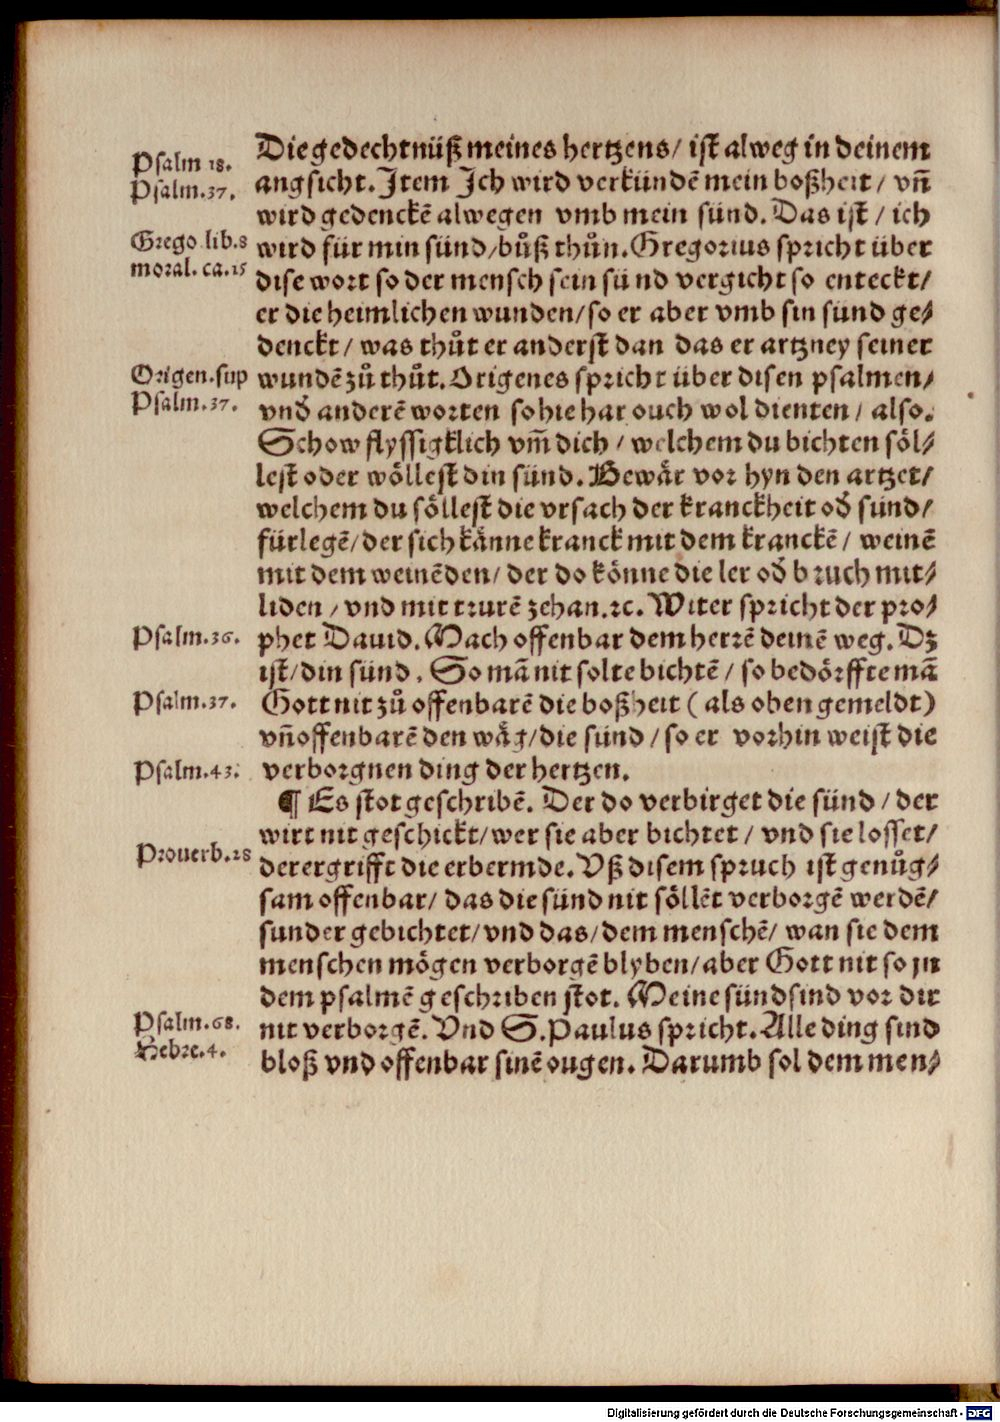 Psalm 18.
Psalm.37.
Grego lib.8
moral. ca.15
Origen.sup
Psalm.37.
Psalm.36.
Psalm.37.
Psalm.43.
Prouerb.28
Psalm.68.
Hebre.4.
Die gedechtnüß meines hertzens/ ist alweg in deinem
angsicht. Item Ich wird verkündē mein boßheit/ vn̄
wird gedenckē alwegen vmb mein sünd. Das ist/ ich
wird für min sünd/bůß thůn. Gregorius spricht über
dise wort so der mensch sein sünd vergicht so enteckt/
er die heimlichen wunden/so er aber vmb sin sünd ge/
denckt/ was thůt er anderst dan das er artzney seiner
wundē zů thůt. Origenes spricht über disen psalmen/
vnd anderē worten so hie har ouch wol dienten/ also.
Schow flyssigklich vm̄ dich/ welchem du bichten söl/
lest oder wöllest din sünd. Bewär vor hyn den artzet/
welchem du söllest die vrsach der kranckheit od̕ sünd/
fürlegē/der sich känne kranck mit dem kranckē/ weinē
mit dem weinēden/ der do könne die ler od̕ bruch mit/
liden/vnd mit trurē zehan.ꝛc. Witer spricht der pro/
phet Dauid. Mach offenbar dem herrē deinē weg. Dz
ist/din sünd. So mā nit solte bichtē/ so bedörffte mā
Gott nit zů offenbarē die boßheit (als oben gemeldt)
vn̄ offenbarē den wäg/die sünd/so er vorhin weist die
verborgnen ding der hertzen.
¶ Es stot geschribē. Der do verbirget die sünd/der
wirt nit geschickt/wer sie aber bichtet/ vnd sie losset/
der ergrifft die erbermde. Vß disem spruch ist genůg/
sam offenbar/ das die sünd nit söllēt verborgē werdē/
sunder gebichtet/vnd das/dem menschē/ wan sie dem
menschen mögen verborgē blyben/aber Gott nit so jn
dem psalmē geschriben stot. Meine sünd sind vor dir
nit verborgē. Vnd S.Paulus spricht. Alle ding sind
bloß vnd offenbar sinē ougen. Darumb sol dem men/
Digitalisierung gefördert durch die Deutsche Forschungsgemeinschaft - DFG